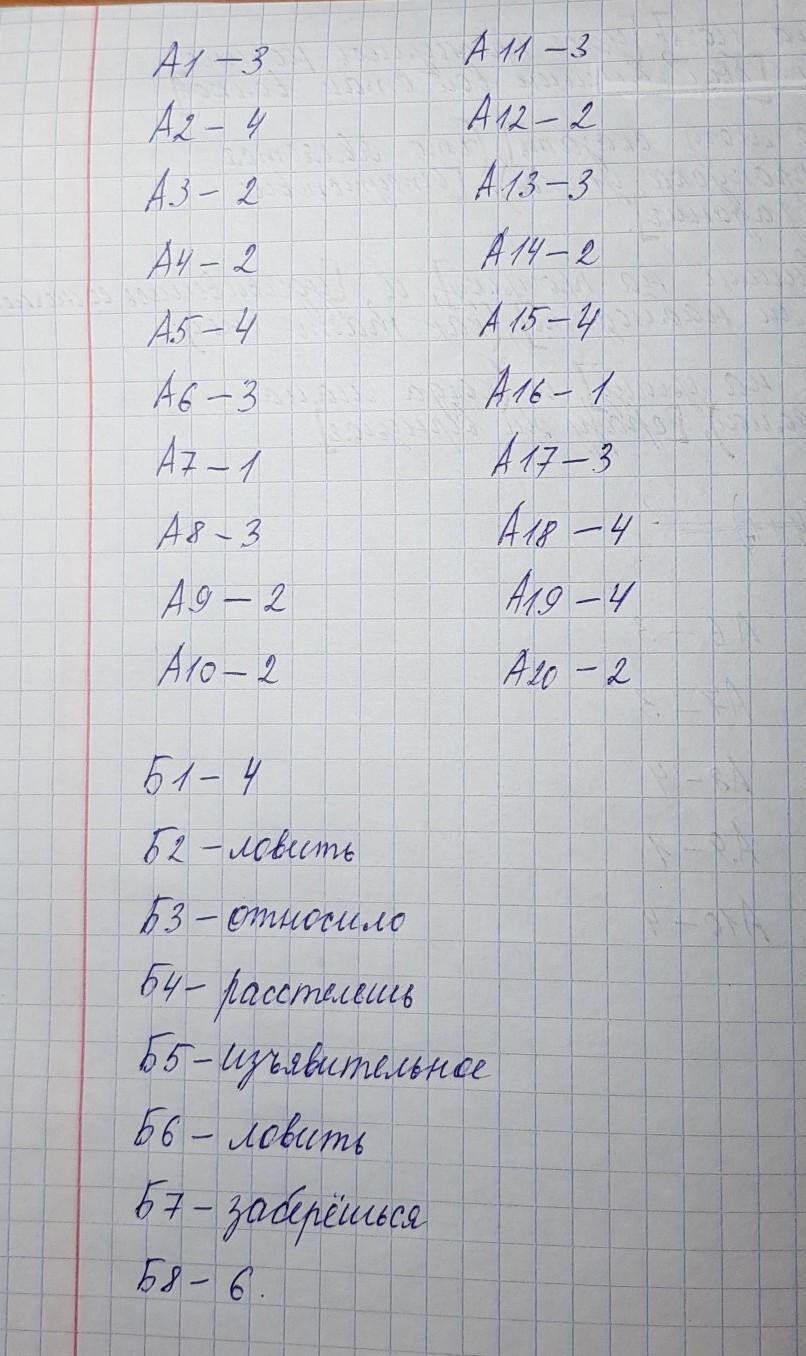 А1 – 3
А2 – 4
А3 – 2
А4 – 2
А5 – 4
А6 – 3
А7 – 1
А8 – 3
А9 – 2
А10 – 2
А11 – 3
А12 – 2
А13 – 3
А14 – 2
А15 – 4
А16 – 1
А17 – 3
А18 – 4
А19 – 4
А20 – 2
Б1 – 4
Б2 – ловить
Б3 – относило
Б4 – расстелешь
Б5 – изъявительное
Б6 – ловить
Б7 – заберёшься
Б8 – 6.